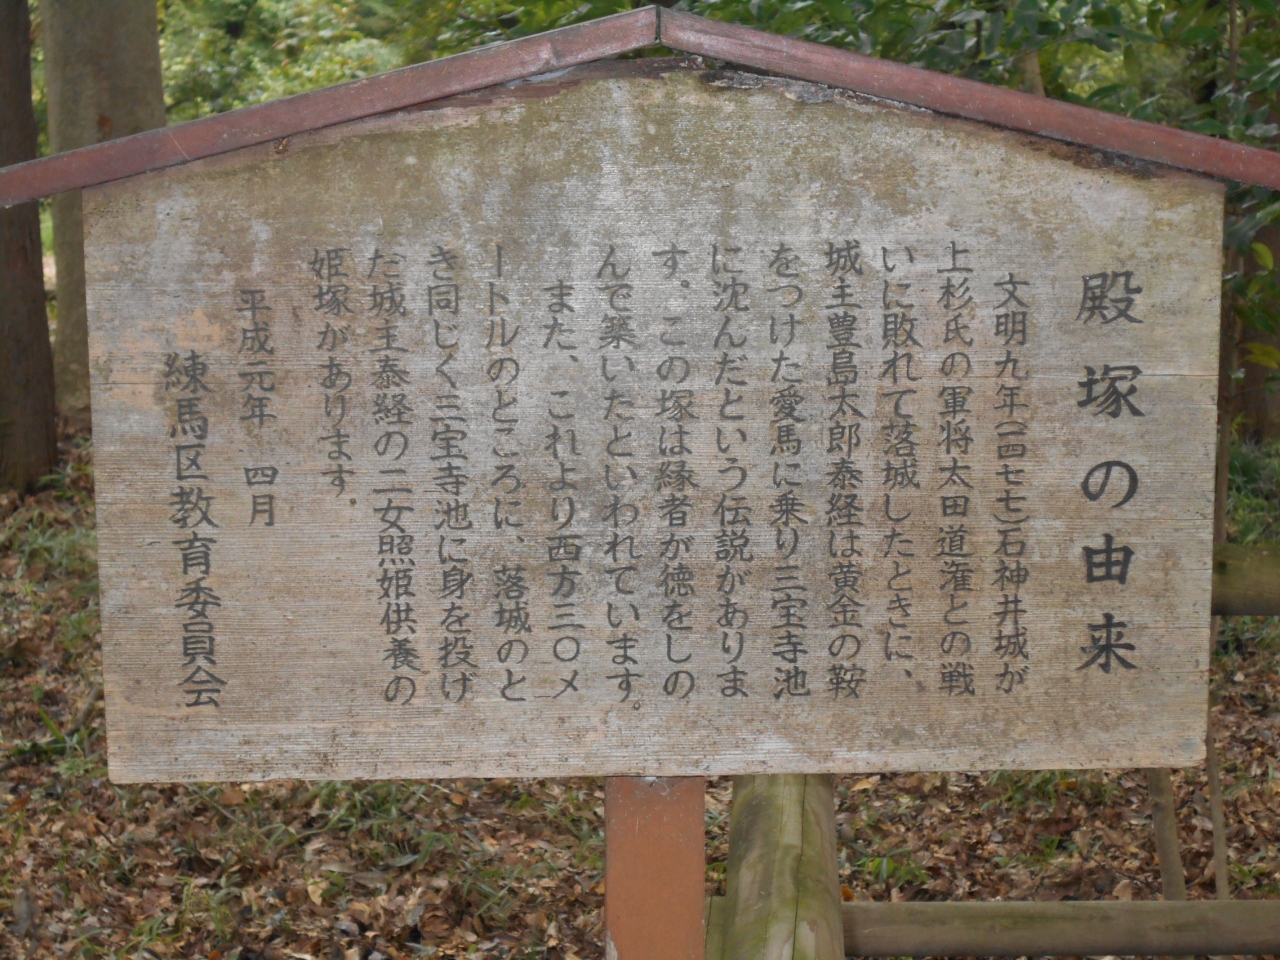 殿塚の由来
文明九年(一四七七)石神井城が
上杉氏の軍将太田道潅との戦
いに敗れて落城したときに、
城主豊島太郎泰経は黄金の鞍
をつけた愛馬に乗り三宝寺池
に沈んだという伝説がありま
す。この塚は縁者が徳をしの
んで築いたといわれています。
また、これより西方三〇メ
ートルのところに、落城のと
き同じく三宝寺池に身を投げ
だ城主泰経の二女照姫供養の
姫塚があります。
平成元年 四月
練馬区教育委員会